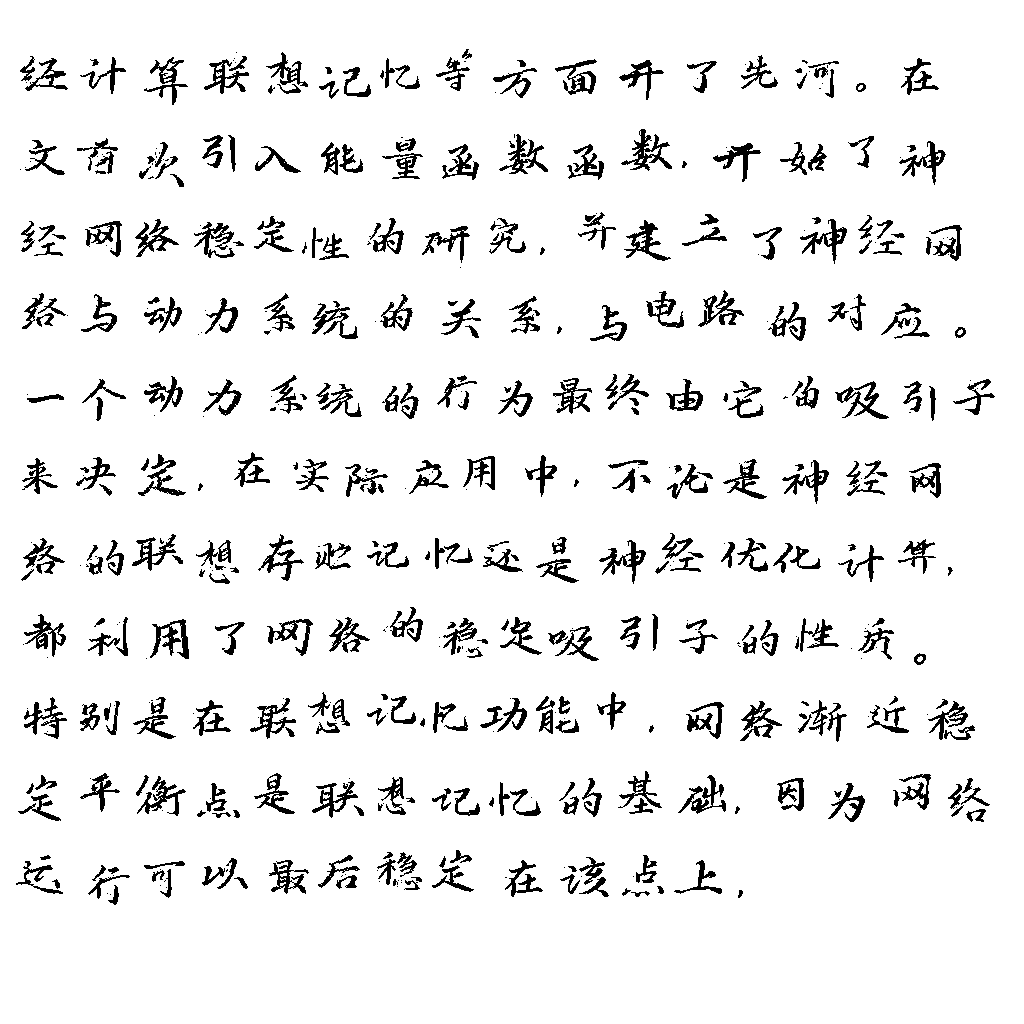 经计算联想记忆等方面开了先河。在
文首次引入能量函数函数,开始了神
经网络稳定性的研究,并建立了神经网
络与动力系统的关系,与电路的对应。
一个动力系统的行为最终由它的吸引子
来决定,在实际应用中,不论是神经网
络的联想存贮记忆还是神经优化计算,
都利用了网络的稳定吸引子的性质。
特别是在联想记忆功能中,网络渐近稳
定平衡点是联想记忆的基础,因为网络
运行可以最后稳定在该点上,